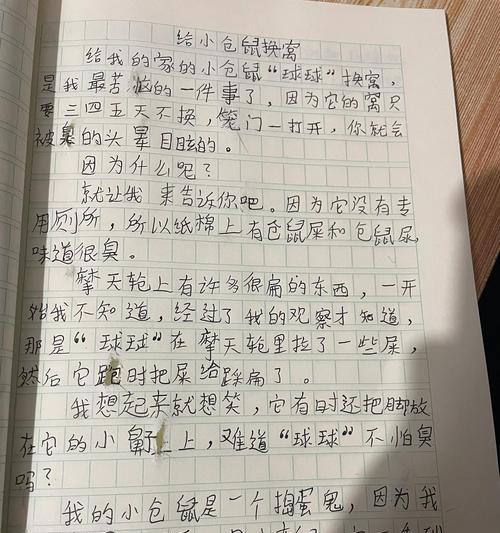 给小仓鼠换窝
给我的家的小仓鼠“球球”换窝，
是我最苦恼的一件事了，因为它的窝只
要三四五天不换，笼门一打开，你就会
被臭的头晕目眩的。
因为什么呢？
就让我来告诉你吧。因为它没有专
用厕所，所以纸棉上有仓鼠屎和仓鼠尿，
味道很臭。
摩天轮上有许多很扁的东西，一开
始我不知道，经过了我的观察才知道，
那是“球球”在摩天轮里拉了一些屎，
然后它跑时把屎给踩扁了。
我想起来就想笑，它有时还把脚放
在它的小鼻子上，难道“球球”不怕臭
吗？
我的小仓鼠是一个捣蛋鬼，因为我